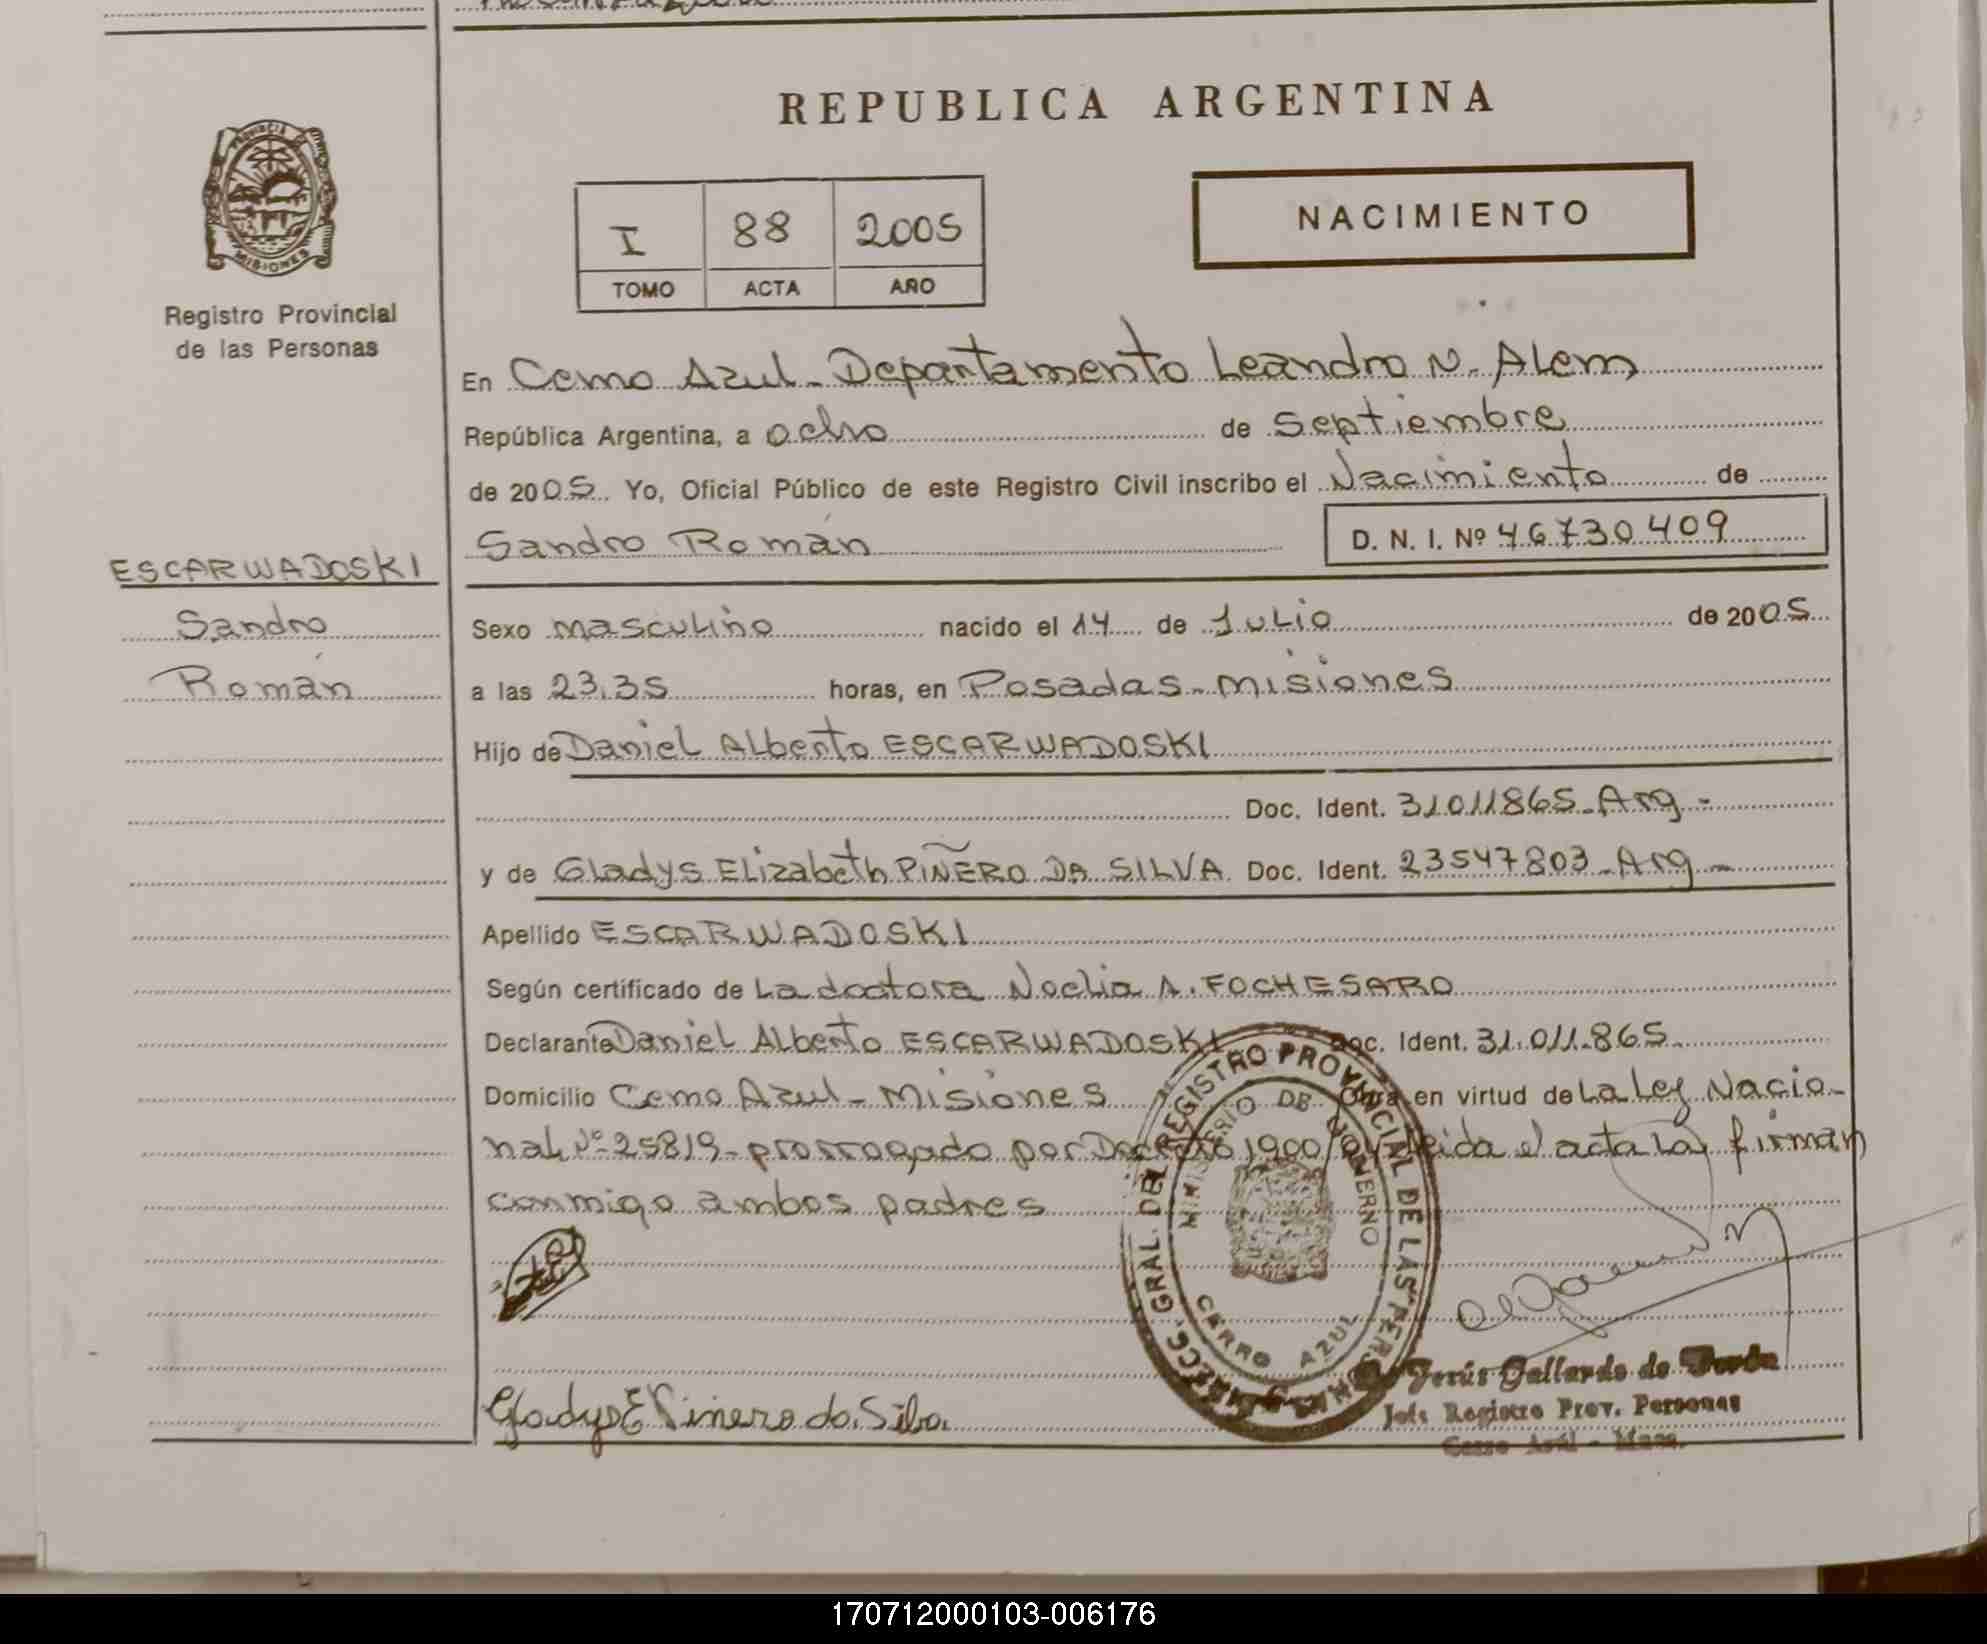 REPUBLICA ARGENTINA
PROVINCIA DE
MISIONES
Registro Provincial
de las Personas
I 88 2005
TOMO ACTA AÑO
NACIMIENTO
En Cerro Azul - Departamento Leandro N. Alem
República Argentina, a ocho de Septiembre
de 2005 Yo, Oficial Público de este Registro Civil inscribo el Nacimiento de
Sandro Román D. N. I. Nº 46730409
ESCARWADOSKI
Sandro
Román
Sexo masculino nacido el 14 de Julio de 2005
a las 23,35 horas, en Posadas - misiones
Hijo de Daniel Alberto ESCARWADOSKI
Doc. Ident. 31011865 - Arg -
y de Gladys Elizabeth PIÑERO DA SILVA Doc. Ident. 23547803 - Arg -
Apellido ESCARWADOSKI
Según certificado de La doctora Noelia A. FOCHESARO
Declarante Daniel Alberto ESCARWADOSKI Doc. Ident. 31.011.865
Domicilio Cerro Azul - Misiones Obra en virtud de La Ley Nacio-
nal Nº 25819 - prorrogado por Decreto 1900/ Leida el acta La firman
conmigo ambos padres
DIRECC. GRAL. DEL REGISTRO PROVINCIAL DE LAS PERSONAS
MINISTERIO DE GOBIERNO
CERRO AZUL
Gladys E Pinero da Silva
Jesús Gallardo de
Jefe Registro Prov. Personas
Cerro Azul - Mnes.
170712000103-006176